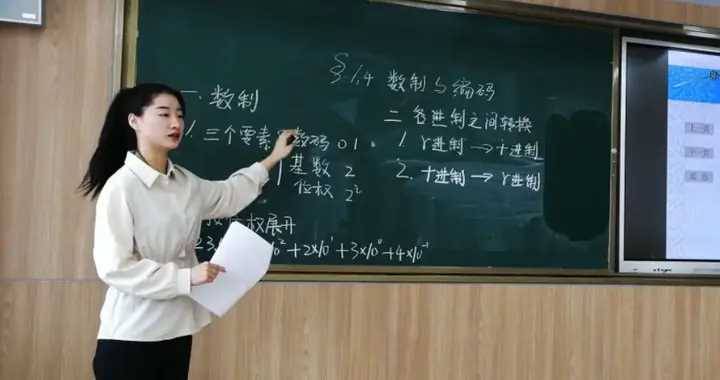 §1.4 数制与编码
一. 数制
1. 三个要素 数码 0 1
基数 2
位权 2²
权展开
+2×10¹+3×10⁰+4×10⁻¹
二 各进制之间转换
1. r进制 → 十进制
2. 十进制 → r进制